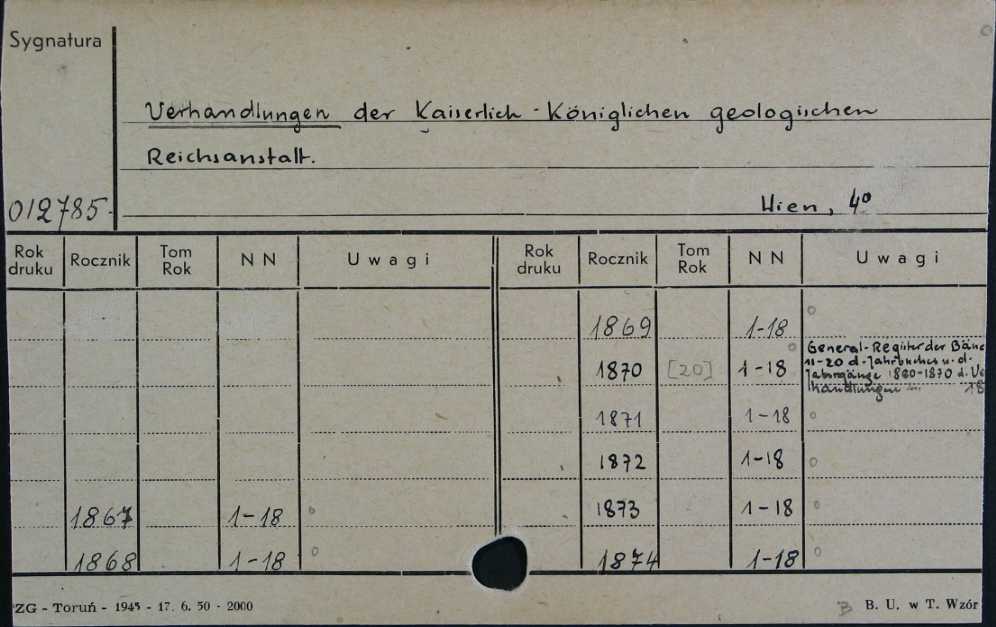 Sygnatura
Verhandlungen der Kaiserlich-Königlichen geologischen
Reichsanstalt.
012785.
Wien, 4º
Rok druku Rocznik Tom Rok N N Uwagi Rok druku Rocznik Tom Rok N N Uwagi
1869 1-18
1870 [20] 1-18 General-Register der Bänd
11-20 d. Jahrbuches u. d.
Jahrgänge 1860-1870 d. Ve
handlungen 18
1871 1-18
1872 1-18
1867 1-18 1873 1-18
1868 1-18 1874 1-18
PZG - Toruń - 1945 - 17. 6. 50 - 2000
B. U. w T. Wzór